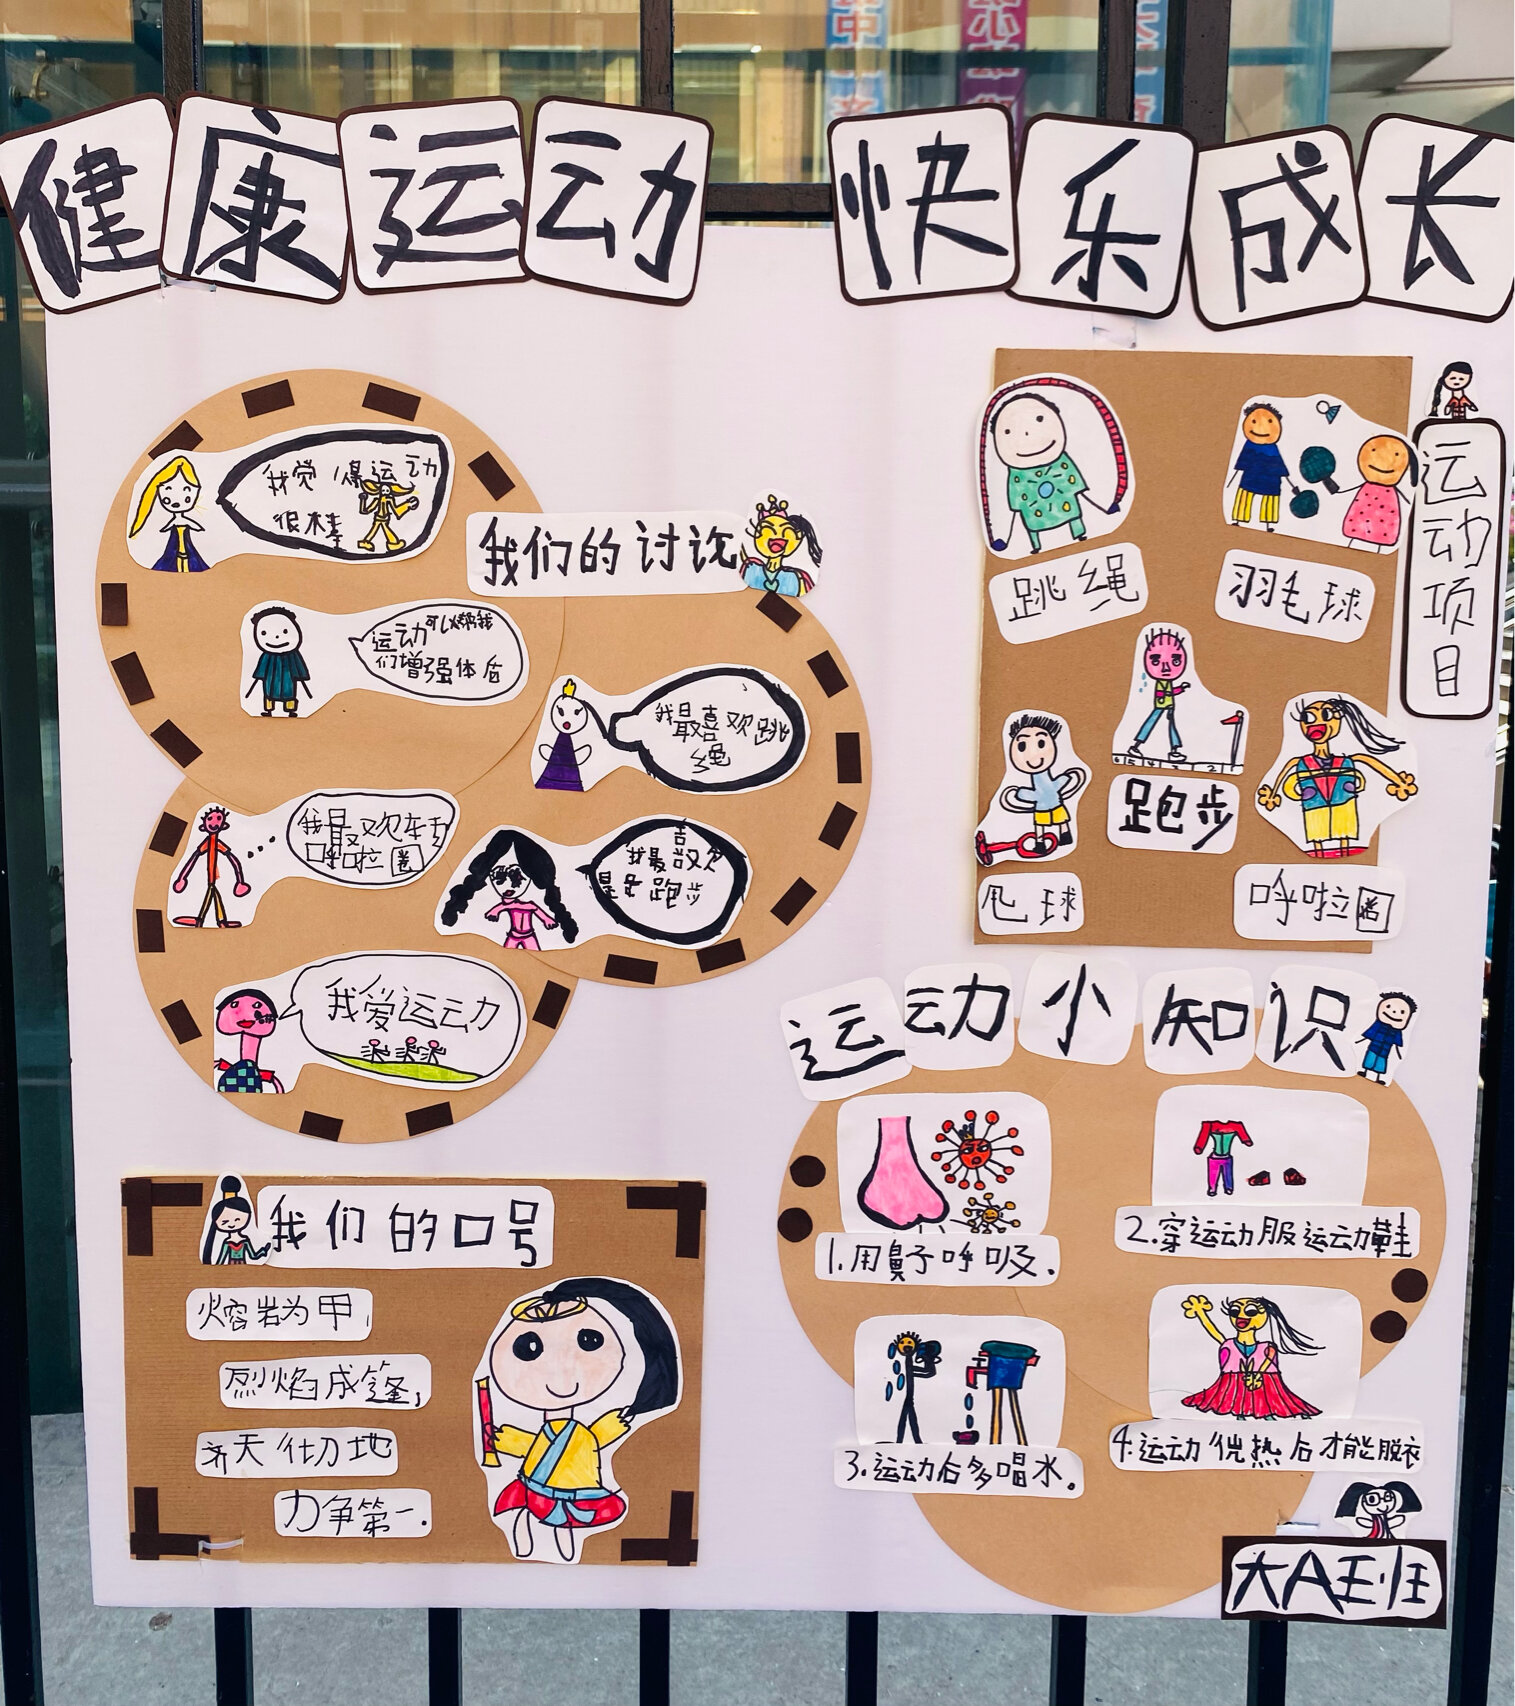 健康运动 快乐成长
我们的讨论
我觉得运动
很棒
运动可以帮我
们增强体后
我最喜欢跳
绳
我最欢转
呼啦圈
我最喜欢
是跑步
我爱运动
运动项目
跳绳
羽毛球
跑步
球
呼啦圈
运动小知识
1.用鼻子呼吸.
2.穿运动服运动鞋
3.运动后多喝水。
4.运动 热后才能脱衣
我们的口号
熔岩为甲,
烈焰成篷,
齐天 地
力争第一.
大A班